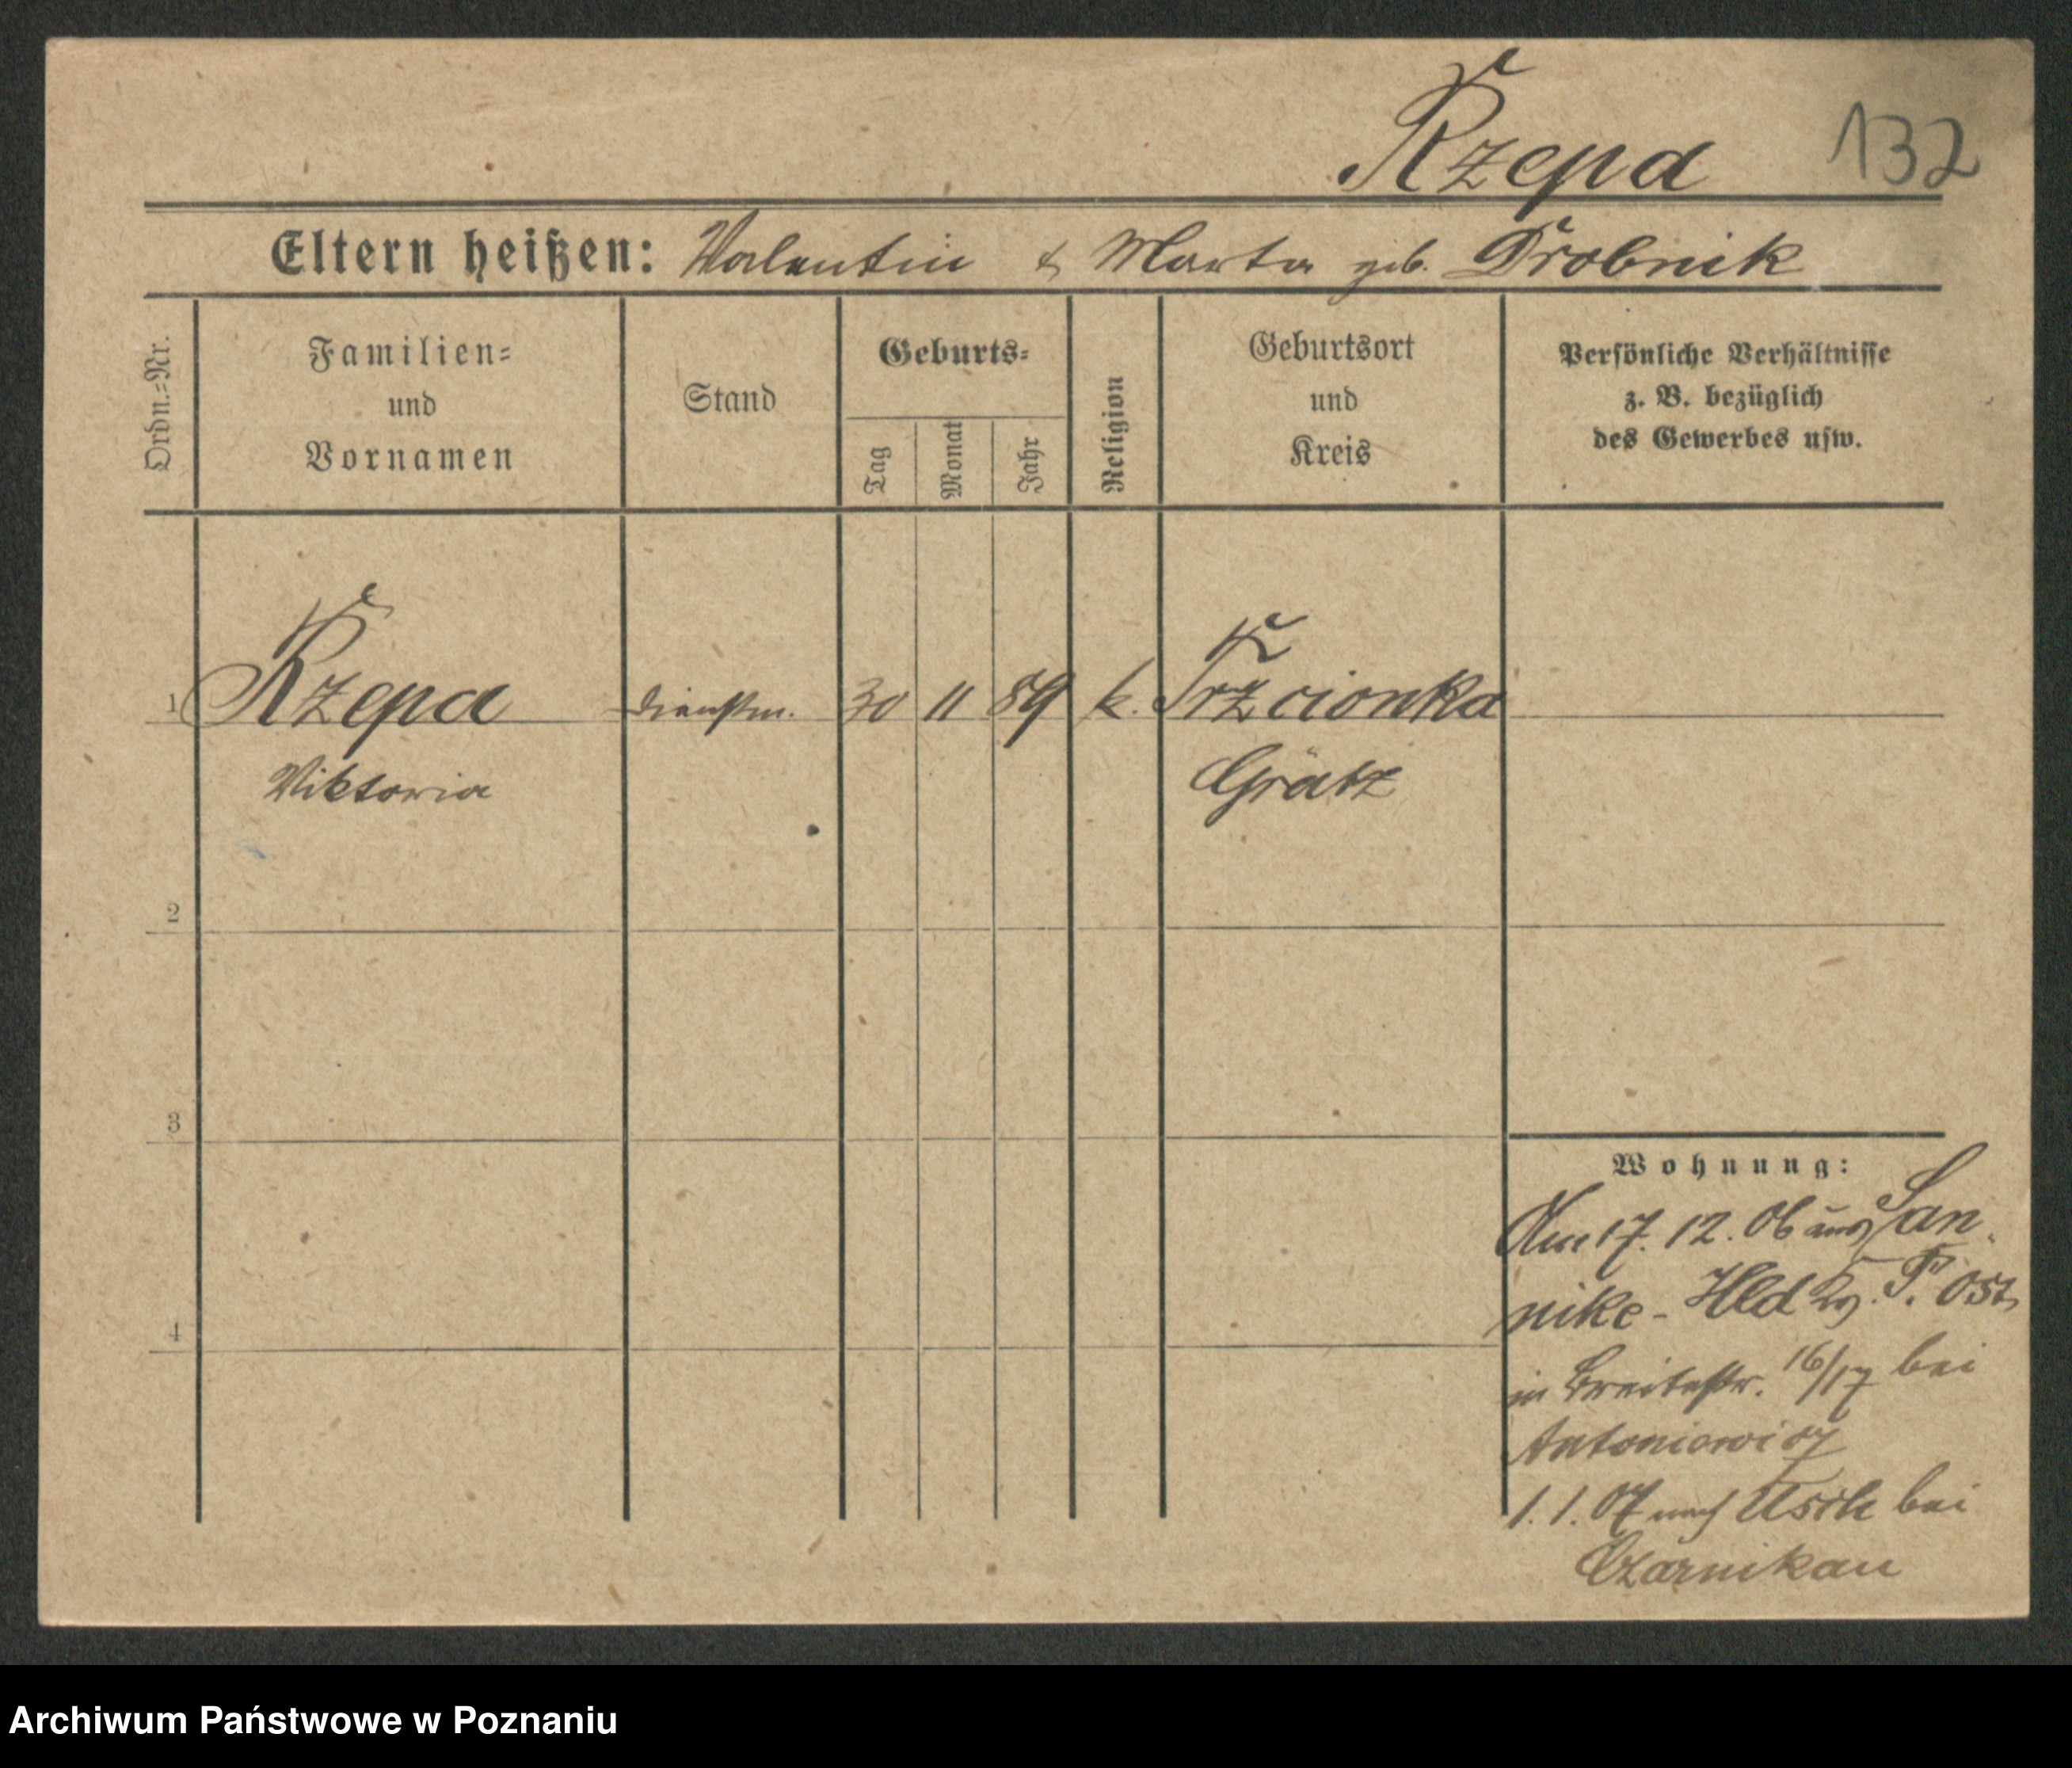 Rzepa 132
Eltern heißen: Valentin & Marta geb. Drobnik
Ordn.=Nr.
Familien=
und
Vornamen
Stand
Geburts=
Tag
Monat
Jahr
Religion
Geburtsort
und
Kreis
Persönliche Verhältnisse
z. B. bezüglich
des Gewerbes usw.
1 Rzepa Dienstm. 30 11 89 k. Trzcionka
Viktoria Grätz
2
3
4
Wohnung:
Am 17. 12. 06 aus San-
nike- Hld P. Ost
in Breitestr. 16/17 bei
Antoniewicz
1. 1. 07 nach Usch bei
Czarnikau
Archiwum Państwowe w Poznaniu